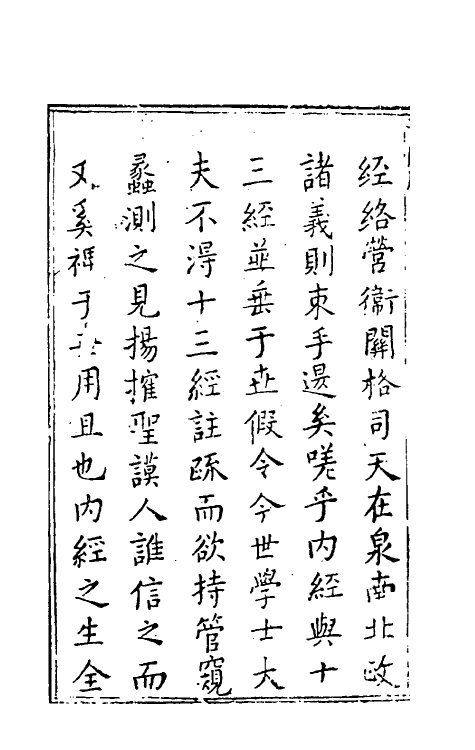 经络營衞關格司天在泉南北政
諸義則束手退矣嗟乎内經與十
三經並垂于世假令今世學士大
夫不淂十三經註䟽而欲持管窺
蠡測之見揚搉聖謨人誰信之而
又奚裨于用且也内經之生全